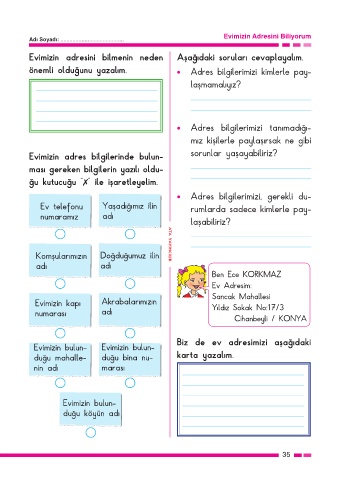 Adı Soyadı: ..................................
Evimizin Adresini Biliyorum
Evimizin adresini bilmenin neden
önemli olduğunu yazalım.
Evimizin adres bilgilerinde bulun-
ması gereken bilgilerin yazılı oldu-
ğu kutucuğu "✗" ile işaretleyelim.
Ev telefonu
numaramız
Yaşadığımız ilin
adı
Komşularımızın
adı
Doğduğumuz ilin
adı
Evimizin kapı
numarası
Akrabalarımızın
adı
Evimizin bulun-
duğu mahalle-
nin adı
Evimizin bulun-
duğu bina nu-
marası
Evimizin bulun-
duğu köyün adı
Aşağıdaki soruları cevaplayalım.
• Adres bilgilerimizi kimlerle pay-
laşmamalıyız?
• Adres bilgilerimizi tanımadığı-
mız kişilerle paylaşırsak ne gibi
sorunlar yaşayabiliriz?
• Adres bilgilerimizi, gerekli du-
rumlarda sadece kimlerle pay-
laşabiliriz?
Ben Ece KORKMAZ
Ev Adresim:
Sancak Mahallesi
Yıldız Sokak No:17/3
Cihanbeyli / KONYA
Biz de ev adresimizi aşağıdaki
karta yazalım.
35